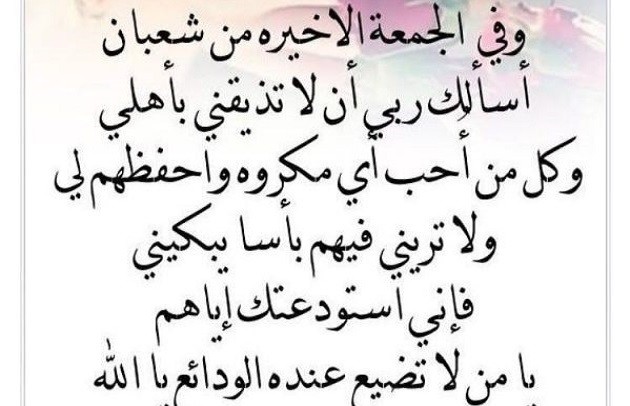 وفي الجمعة الاخيره من شعبان
أسألك ربي أن لا تذيقني بأهلي
وكل من أحب أي مكروه واحفظهم لي
ولا تريني فيهم بأسا يبكيني
فإني استودعتك إياهم
يا من لا تضيع عنده الودائع يا الله